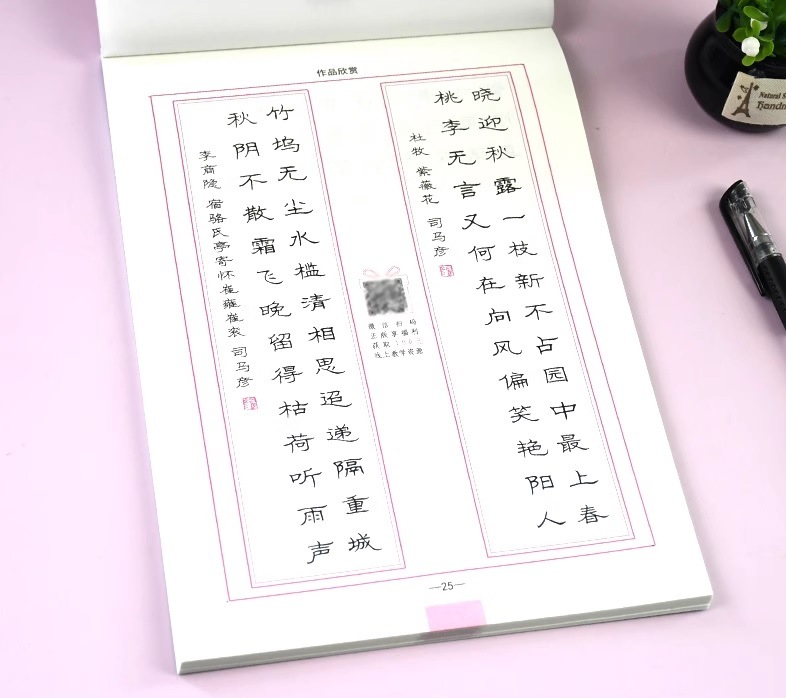 作品欣赏
晓迎秋露一枝新不占园中最上春
桃李无言又何在向风偏笑艳阳人
杜牧 紫薇花 司马彦
微信扫码
正版享福利
获取
线上教学资源
竹坞无尘水槛清相思迢递隔重城
秋阴不散霜飞晚留得枯荷听雨声
李商隐 宿骆氏亭寄怀崔雍崔衮 司马彦
—25—
Natural